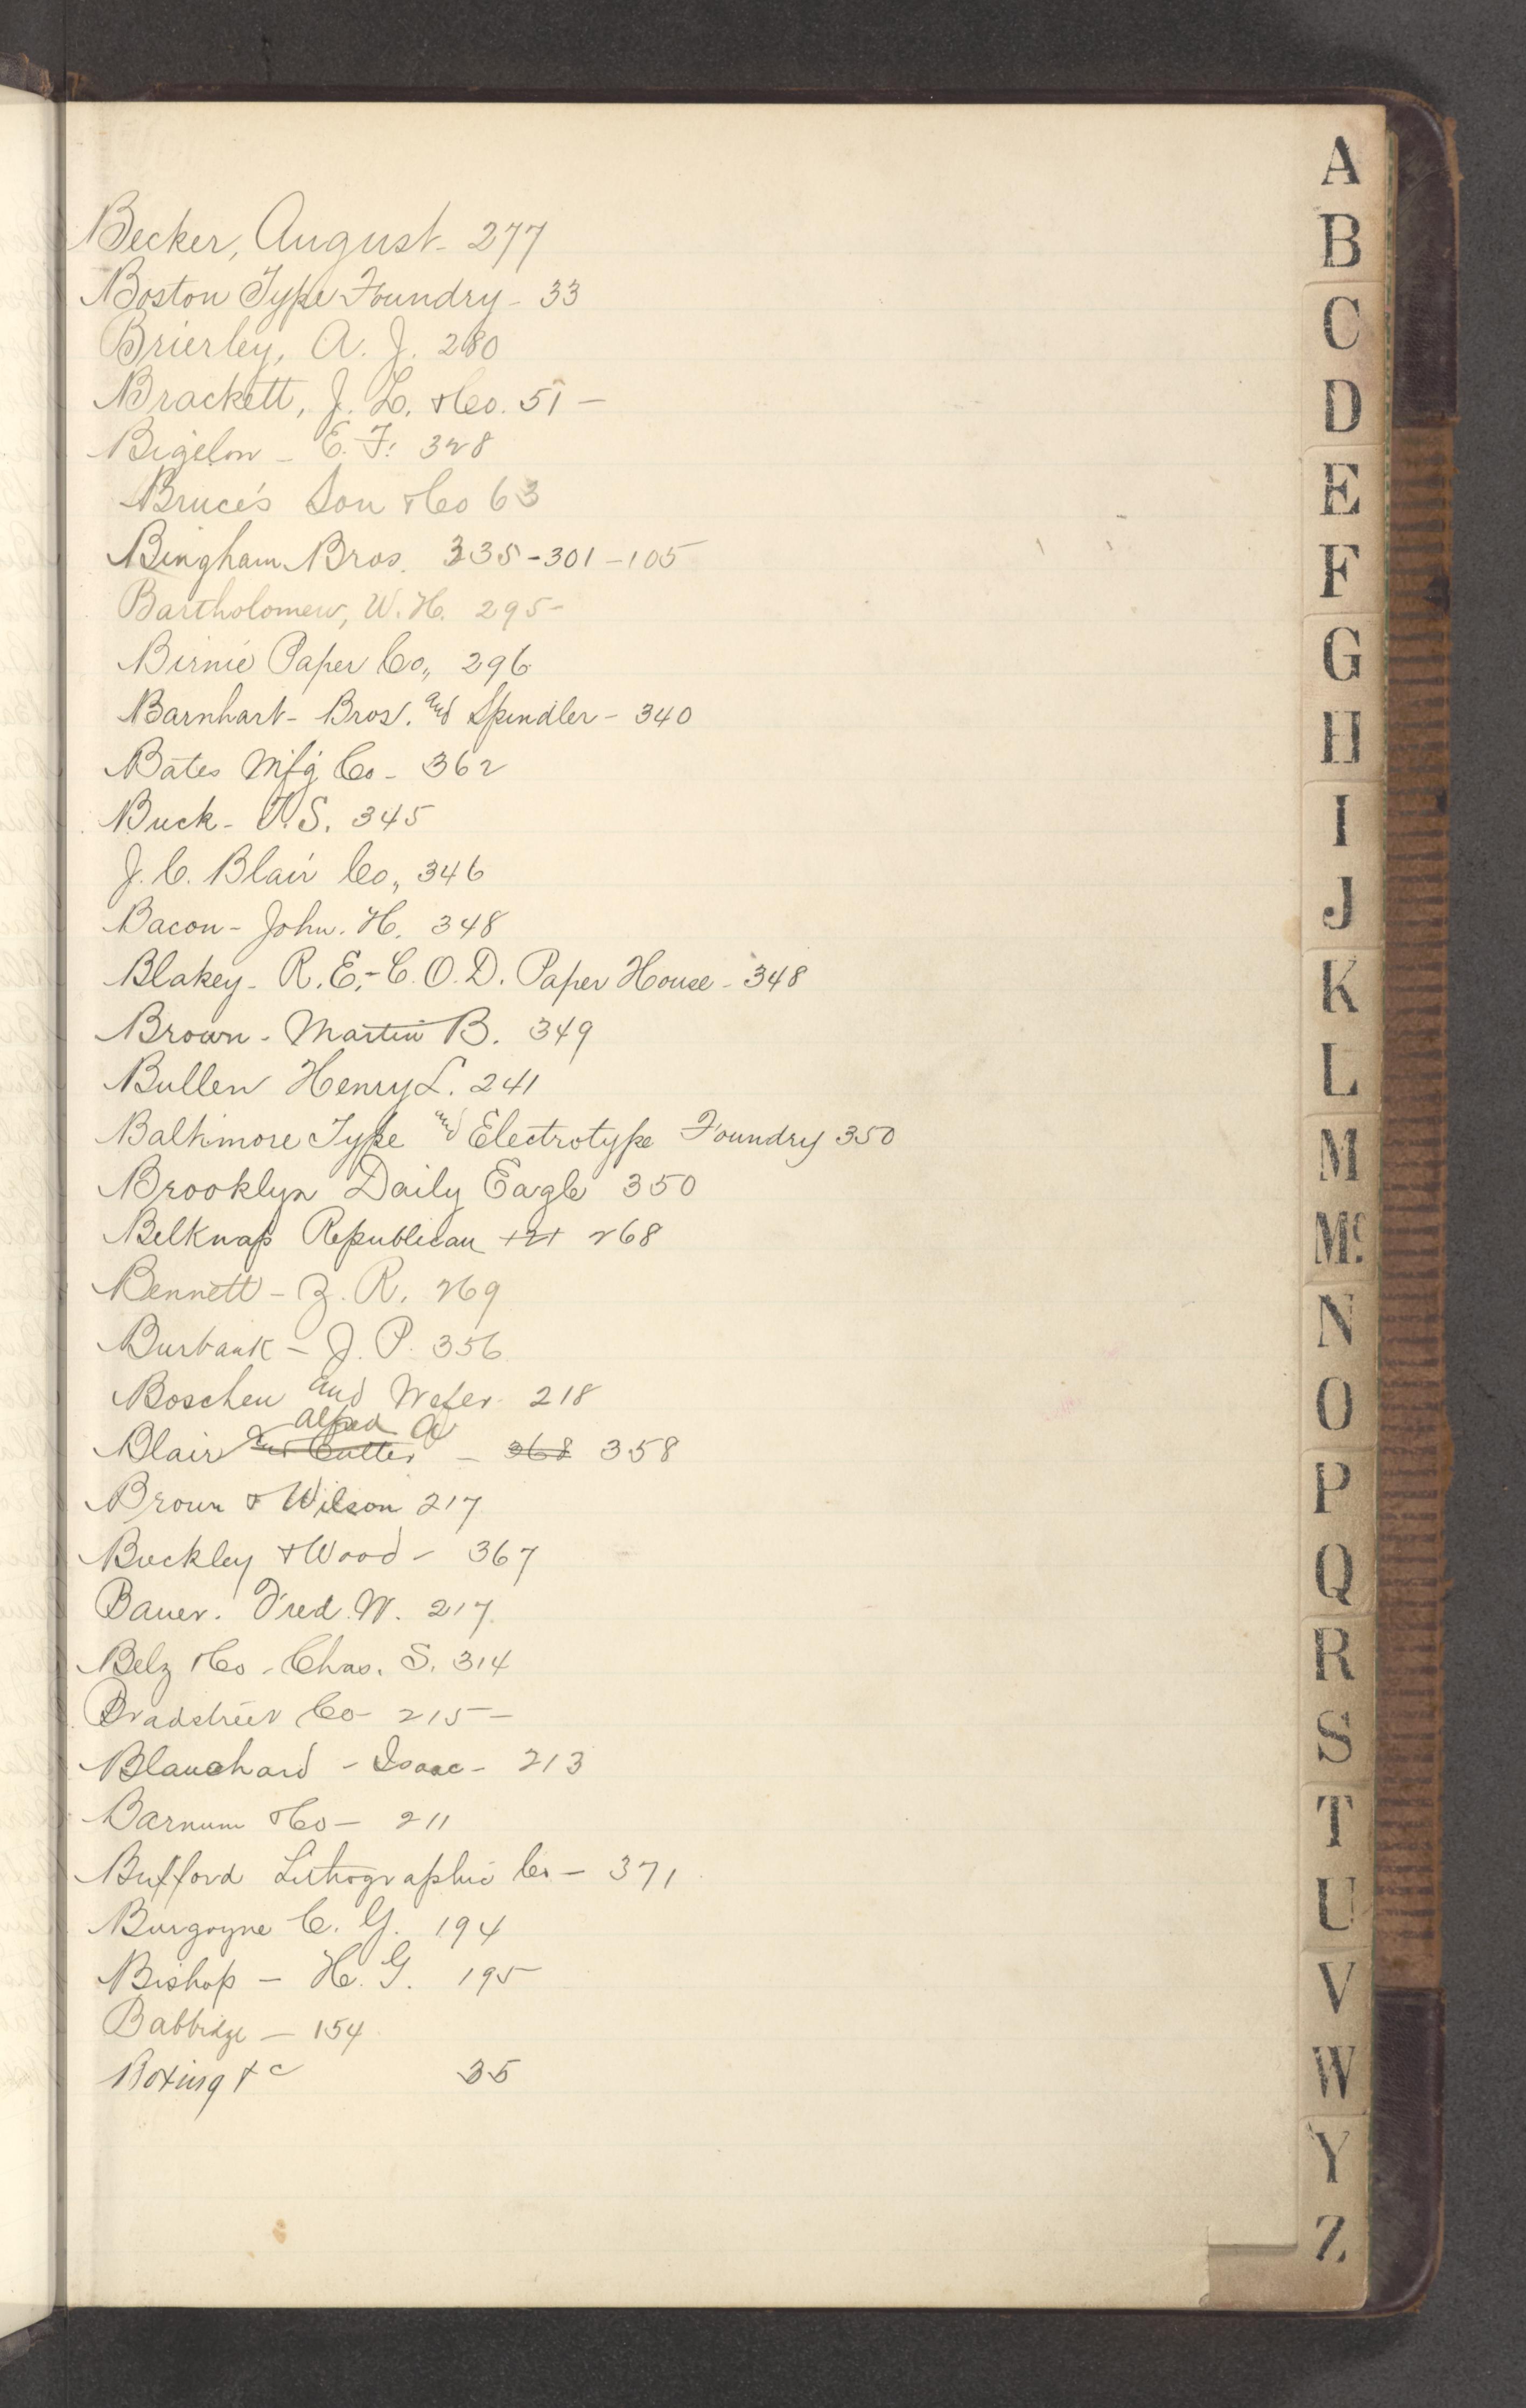 Becker, August - 277
Boston Type Foundry - 33
Brierley, A. J. 280
Brackett, J. L. & Co. 51 -
Bigelow - E. F. 328
Bruce's Son & Co 63
Bingham Bros. 335 - 301 - 105
Bartholomew, W. H. 295 -
Birnie Paper Co., 296
Barnhart - Bros. and Spindler - 340
Bates Mfg Co - 362
Buck - F. S. 345
J. C. Blair Co., 346
Bacon - John. H. 348
Blakey - R. E. - C. O. D. Paper House - 348
Brown - Martin B. 349
Bullen Henry L. 241
Baltimore Type and Electrotype Foundry 350
Brooklyn Daily Eagle 350
Belknap Republican 268
Bennett - Z. R. 269
Burbank - J. P. 356
Boschen and Wefer 218
Alfred A
Blair and Cutter - 368 358
Brown & Wilson 217
Buckley & Wood - 367
Bauer. Fred. W. 217
Belz & Co - Chas. S. 314
Bradstreet Co - 215 -
Blanchard - Isaac - 213
Barnum & Co - 211
Bufford Lithographic Co - 371
Burgoyne C. G. 194
Bishop - H. G. 195
Babbidge - 154
Boxing &c 35
A
B
C
D
E
F
G
H
I
J
K
L
M
Mc.
N
O
P
Q
R
S
T
U
V
W
Y
Z